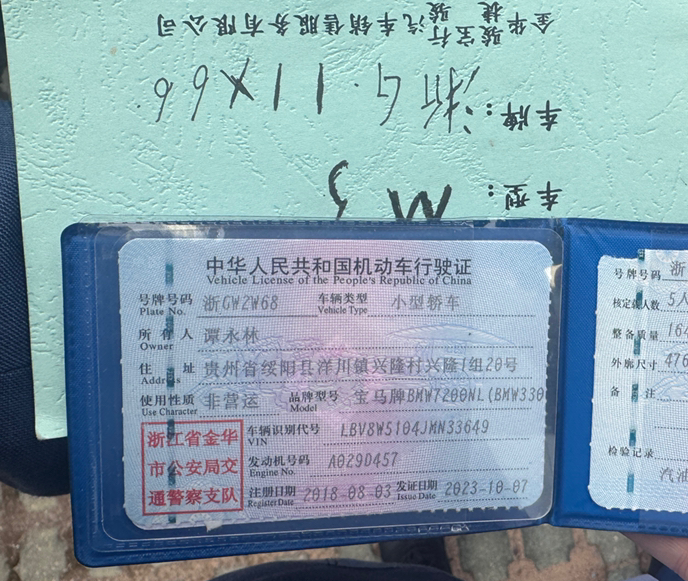 金华骏宝行汽车销售服务有限公司
捷骏
车牌: 浙G·11X66
车型: M3
中华人民共和国机动车行驶证
Vehicle License of the People's Republic of China
号牌号码 浙GW2W68 车辆类型 小型轿车
Plate No. Vehicle Type
所有人 谭永林
Owner
住址 贵州省绥阳县洋川镇兴隆村兴隆1组20号
Address
使用性质 非营运 品牌型号 宝马牌BMW7200NL(BMW330
Use Character Model
浙江省金华市公安局交通警察支队
车辆识别代号 LBV8W5104JMN33649
VIN
发动机号码 A029D457
Engine No.
注册日期 2018-08-03 发证日期 2023-10-07
Register Date Issue Date
号牌号码 浙
核定载人数 5人
整备质量 164
外廓尺寸 476
备注
检验记录
汽油